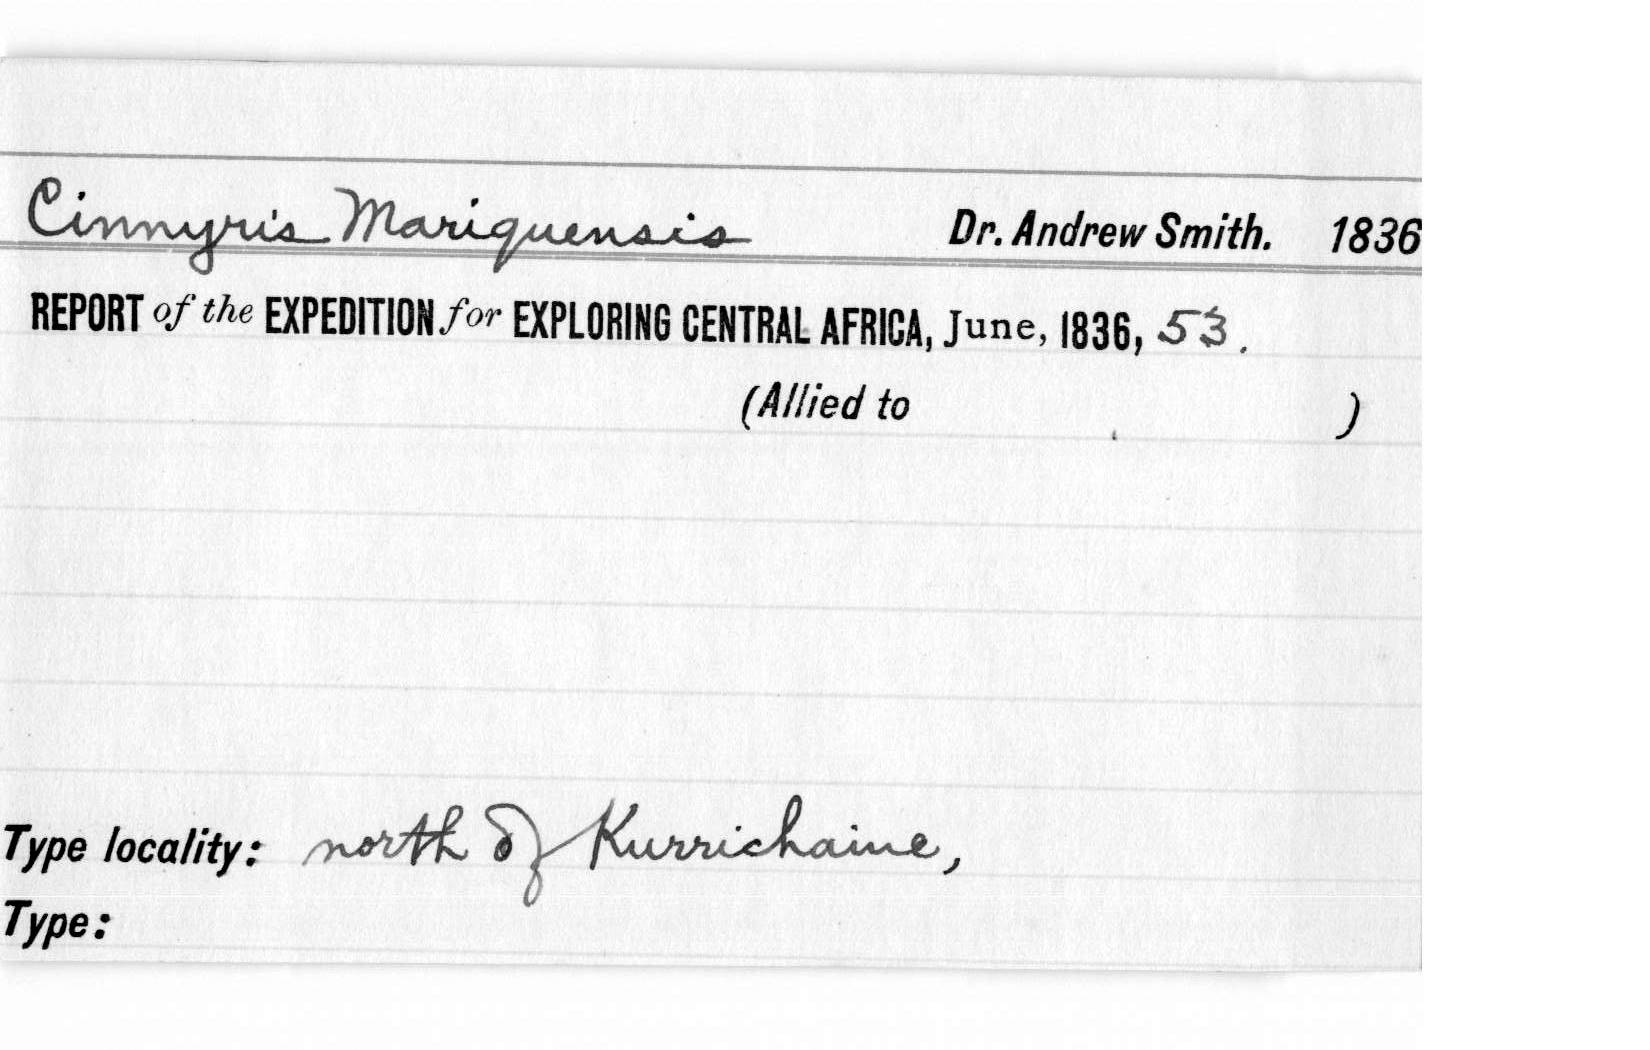 Cinnyris Mariquensis Dr. Andrew Smith. 1836
REPORT of the EXPEDITION for EXPLORING CENTRAL AFRICA, June, 1836, 53.
(Allied to )
Type locality: north of Kurrichaine,
Type: